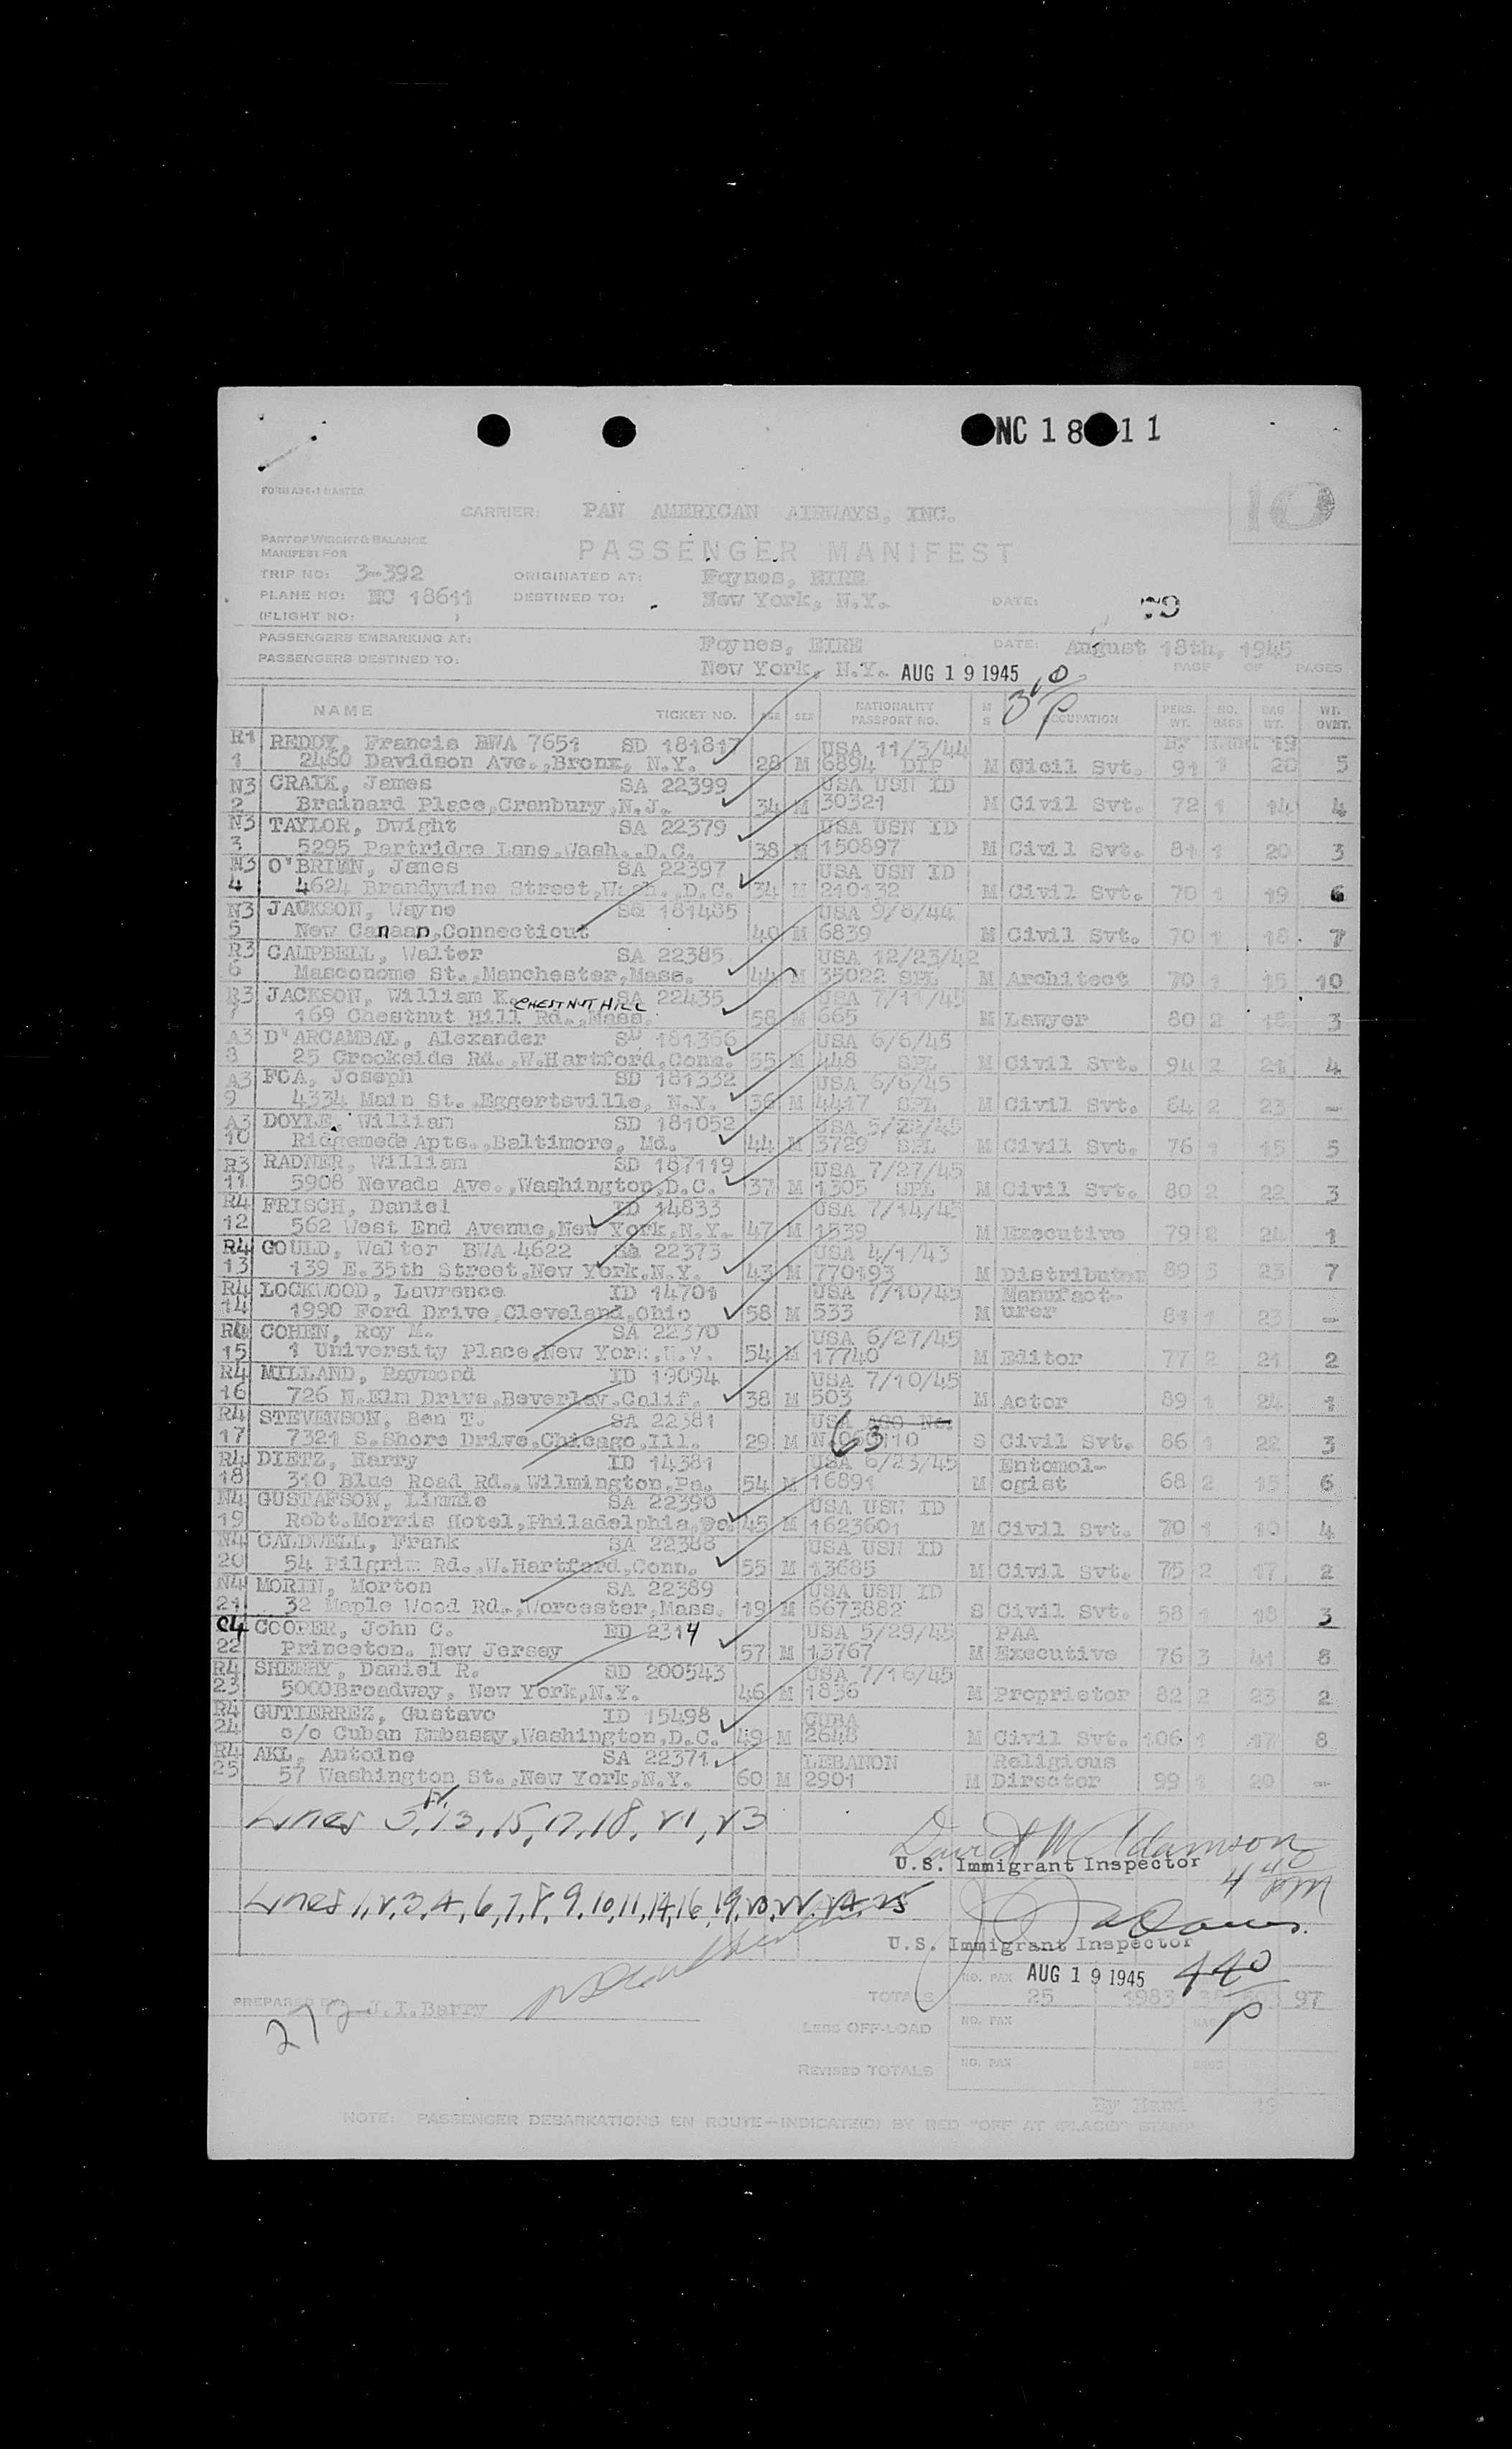 NC 18 11
FORM A26-1 MASTER
10
CARRIER: PAN AMERICAN AIRWAYS, INC.
PART OF WEIGHT & BALANCE
MANIFEST FOR
PASSENGER MANIFEST
TRIP NO: 3-392 ORIGINATED AT: Foynes, EIRE
PLANE NO: NC 18611 DESTINED TO: New York, N.Y. DATE:
(FLIGHT NO: )
PASSENGERS EMBARKING AT: Foynes, EIRE DATE: August 18th, 1945
PASSENGERS DESTINED TO: New York, N.Y. AUG 19 1945 PAGE OF PAGES
310 P
NAME TICKET NO. AGE SEX NATIONALITY PASSPORT NO. M S OCCUPATION PERS. WT. NO. BAGS BAG WT. WT. OVNT.
By Hand 19
R1 REDDY, Francis BWA 7651 SD 181817 USA 11/3/44
1 2460 Davidson Ave.,Bronx, N.Y. 28 M 6894 DIP M Cicil Svt. 91 1 20 5
N3 CRAIK, James SA 22399 USA USN ID
2 Brainard Place,Cranbury,N.J. 34 M 30321 M Civil Svt. 72 1 14 4
N3 TAYLOR, Dwight SA 22379 USA USN ID
3 5295 Partridge Lane,Wash.,D.C. 38 M 150897 M Civil Svt. 81 1 20 3
N3 O'BRIEN, James SA 22397 USA USN ID
4 4624 Brandywine Street,Wash.,D.C. 34 M 210132 M Civil Svt. 70 1 19 6
N3 JACKSON, Wayne SD 181485 USA 9/8/44
5 New Canaan,Connecticut 40 M 6839 M Civil Svt. 70 1 18 7
R3 CAMPBELL, Walter SA 22385 USA 12/23/42
6 Masconome St.,Manchester,Mass. 44 M 35022 SPL M Architect 70 1 15 10
R3 JACKSON, William K. SA 22435 USA 7/11/45
CHESTNUT HILL
7 169 Chestnut Hill Rd.,Mass. 58 M 665 M Lawyer 80 2 18 3
A3 D'ARCAMBAL, Alexander SD 181366 USA 6/6/45
8 25 Crookside Rd.,W.Hartford,Conn. 55 M 448 SPL M Civil Svt. 94 2 21 4
A3 FOA, Joseph SD 181332 USA 6/6/45
9 4334 Main St.,Eggertsville, N.Y. 36 M 4417 SPL M Civil Svt. 64 2 23 -
A3 DOYLE, William SD 181052 USA 5/22/45
10 Ridgemede Apts.,Baltimore, Md. 44 M 3729 SPL M Civil Svt. 76 1 15 5
R3 RADNER, William SD 187119 USA 7/27/45
11 5908 Nevada Ave.,Washington,D.C. 37 M 1305 SPL M Civil Svt. 80 2 22 3
R4 FRISCH, Daniel ID 14833 USA 7/14/45
12 562 West End Avenue,New York,N.Y. 47 M 1539 M Executive 79 2 24 1
R4 GOULD, Walter BWA 4622 SA 22373 USA 4/1/43
13 139 E.35th Street,New York,N.Y. 43 M 770193 M Distributor 89 3 23 7
R4 LOCKWOOD, Lawrence ID 14701 USA 7/10/45 Manufact-
14 1990 Ford Drive,Cleveland,Ohio 58 M 533 M urer 81 1 23 -
R4 COHEN, Roy M. SA 22370 USA 6/27/45
15 1 University Place,New York,N.Y. 54 M 17740 M Editor 77 2 21 2
R4 MILLAND, Raymond ID 19094 USA 7/10/45
16 726 N.Elm Drive,Beverley,Calif. 38 M 503 M Actor 89 1 24 1
R4 STEVENSON, Ben T. SA 22381 USA AGO No.
17 7321 S.Shore Drive,Chicago,Ill. 29 M 63 110 S Civil Svt. 86 1 22 3
R4 DIETZ, Harry ID 14381 USA 6/23/45 Entomol-
18 310 Blue Road Rd.,Wilmington,Pa. 54 M 16891 M ogist 68 2 15 6
N4 GUSTAFSON, Limmie SA 22390 USA USN ID
19 Robt.Morris Hotel,Philadelphia,Pa. 45 M 1623601 M Civil Svt. 70 1 10 4
N4 CALDWELL, Frank SA 22388 USA USN ID
20 54 Pilgrim Rd.,W.Hartford,Conn. 55 M 13685 M Civil Svt. 75 2 17 2
N4 MORIN, Morton SA 22389 USA USN ID
21 32 Maple Wood Rd.,Worcester,Mass. 19 M 6673882 S Civil Svt. 58 1 18 3
C4 COOPER, John C. ED 2314 USA 5/29/45 PAA
22 Princeton, New Jersey 57 M 13767 M Executive 76 3 41 8
R4 SHEEHY, Daniel R. SD 200543 USA 7/16/45
23 5000Broadway, New York,N.Y. 46 M 1836 M Proprietor 82 2 23 2
R4 GUTIERREZ, Gustavo ID 15498 CUBA
24 c/o Cuban Embassy,Washington,D.C. 49 M 2648 M Civil Svt. 106 1 17 8
R4 AKL, Antoine SA 22371 LEBANON Religious
25 57 Washington St.,New York,N.Y. 60 M 2901 M Director 99 1 20 -
Lines 5, 12, 13, 15, 17, 18, 21, 23
David M Adamson
U.S. Immigrant Inspector
4 40 pm
Lines 1, 2, 3, 4, 6, 7, 8, 9, 10, 11, 14, 16, 19, 20, 22, 24, 25
U.S. Immigrant Inspector
NO. PAX AUG 19 1945 440 P
PREPARED BY J.I.Barry TOTALS 25 1983 38 503 97
LESS OFF-LOAD NO. PAX BAGS
REVISED TOTALS NO. PAX BAGS
By Hand 19
NOTE: PASSENGER DEBARKATIONS EN ROUTE—INDICATE(D) BY RED "OFF AT (PLACE)" STAMP